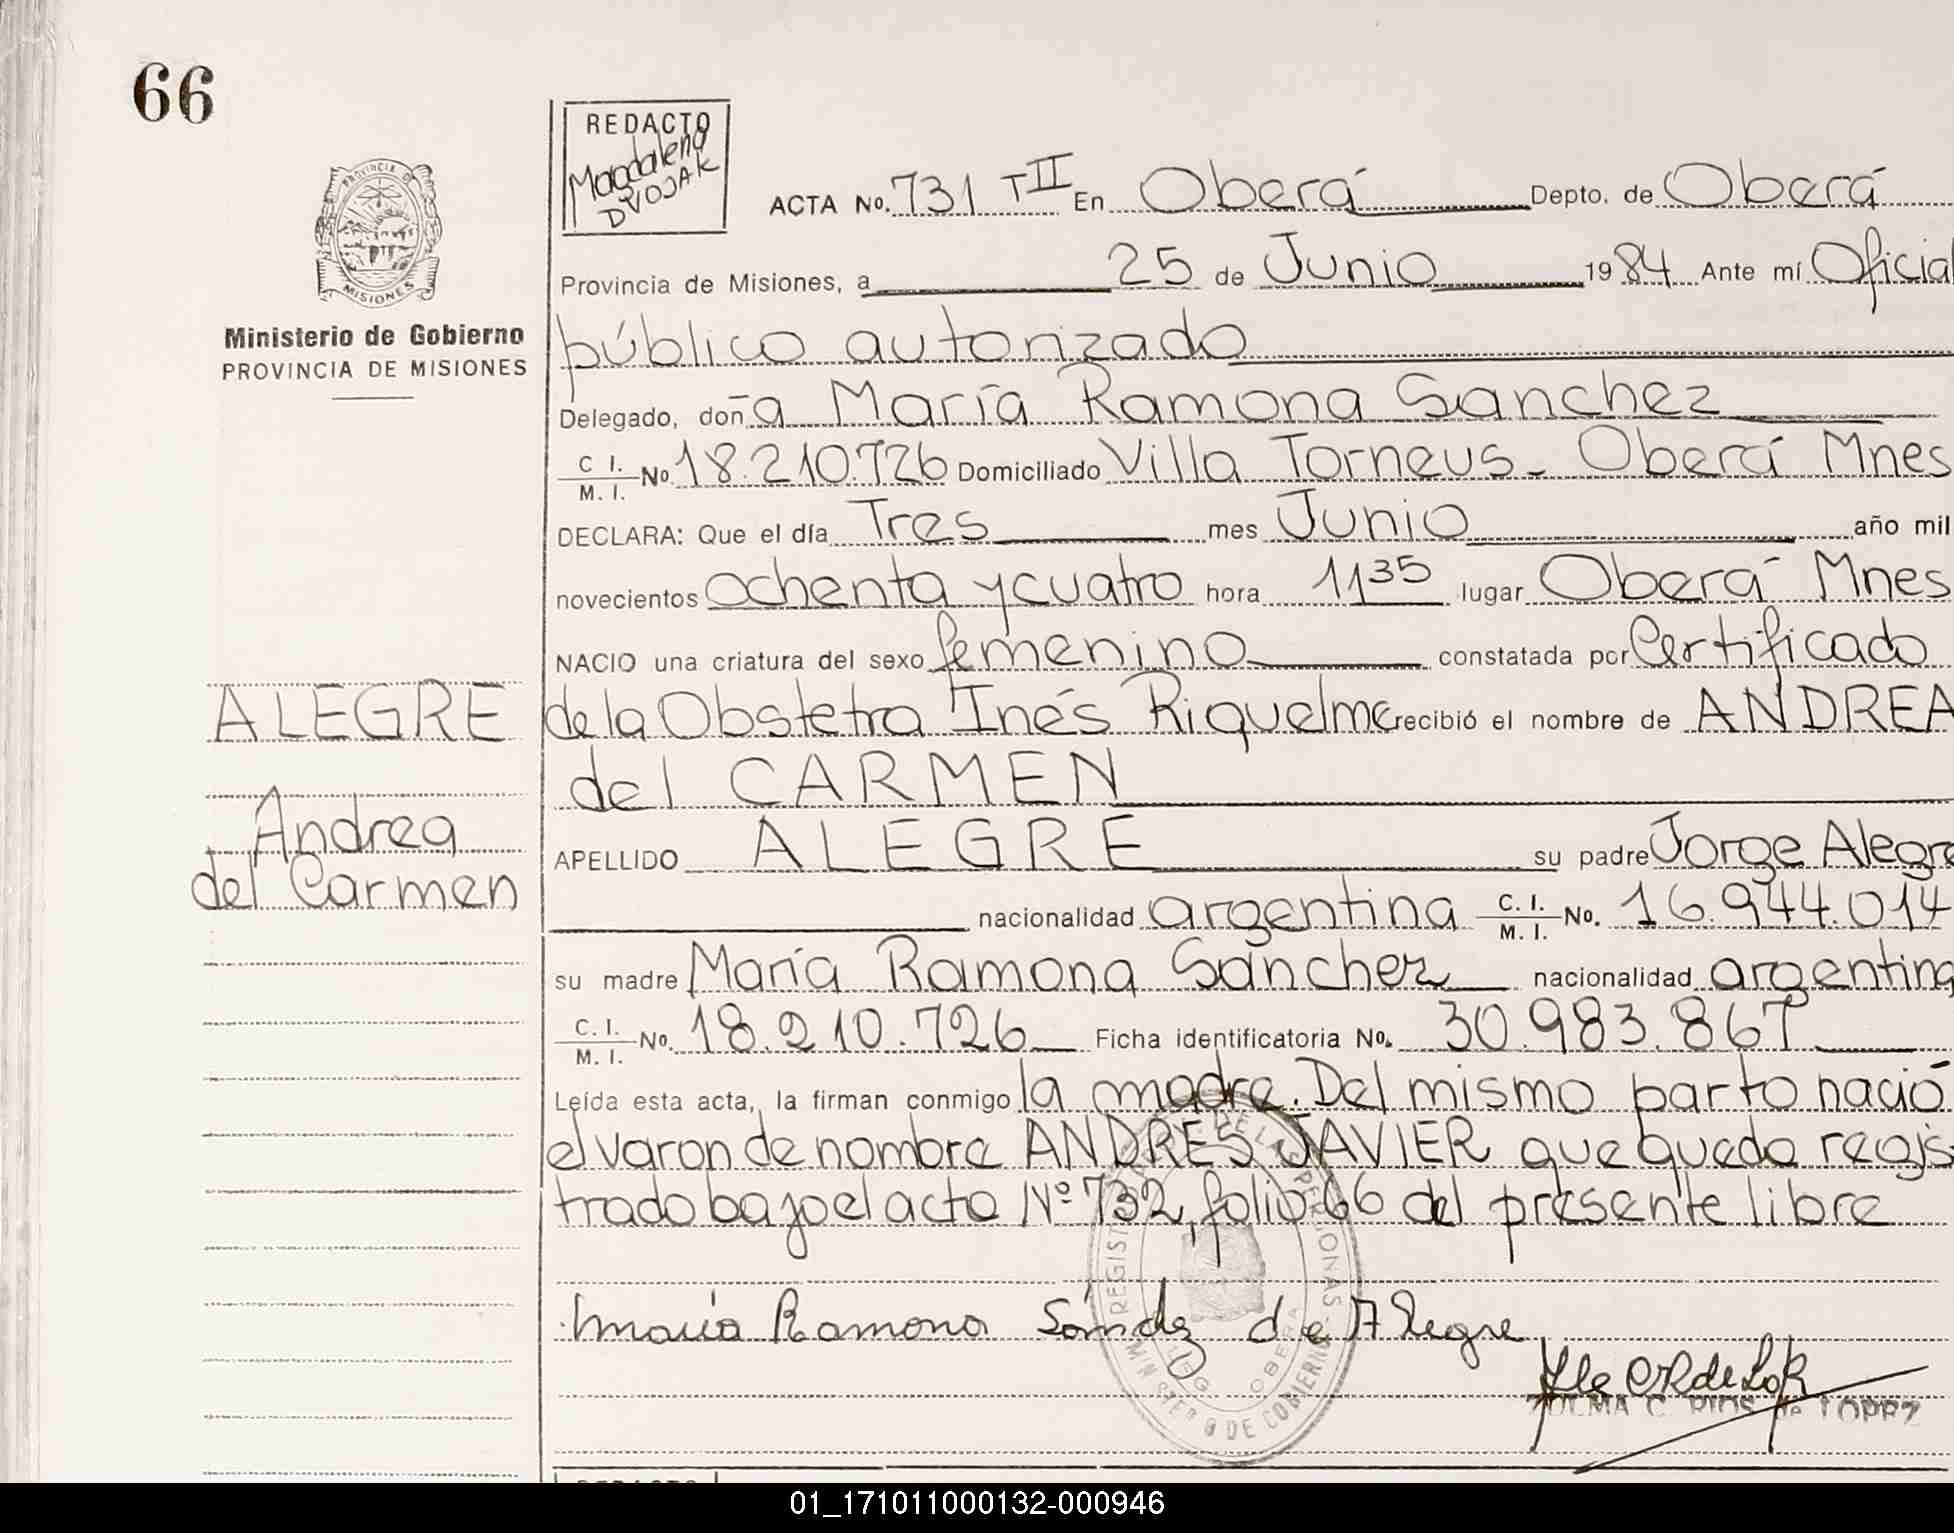 66
PROVINCIA DE
MISIONES
Ministerio de Gobierno
PROVINCIA DE MISIONES
ALEGRE
Andrea
del Carmen
REDACTO
Magdalena
DVOJAK
ACTA No. 731 T II En Oberá Depto. de Oberá
Provincia de Misiones, a 25 de Junio 1984 Ante mí Oficial
público autorizado
Delegado, doña María Ramona Sanchez
C I. M. I. No. 18.210.726 Domiciliado Villa Torneus - Oberá Mnes
DECLARA: Que el día Tres mes Junio año mil
novecientos ochenta y cuatro hora 11 35 lugar Oberá Mnes
NACIO una criatura del sexo femenino constatada por Certificado
de la Obstetra Inés Riquelme recibió el nombre de ANDREA
del CARMEN
APELLIDO ALEGRE su padre Jorge Alegre
nacionalidad argentina C. I. M. I. No. 16.944.014
su madre María Ramona Sánchez nacionalidad argentina
C. I. M. I. No. 18.210.726 Ficha identificatoria No. 30.983.867
Leída esta acta, la firman conmigo la madre. Del mismo parto nació
el varon de nombre ANDRES JAVIER que queda regis-
trado bajo el acta Nº 732, folio 66 del presente libre
María Ramona Sánchez de Alegre
ZULMA C. RIOS de LOPEZ
REGISTRO DE LAS PERSONAS
OBERA
MINISTERIO DE GOBIERNO
REDACTO
01_171011000132-000946